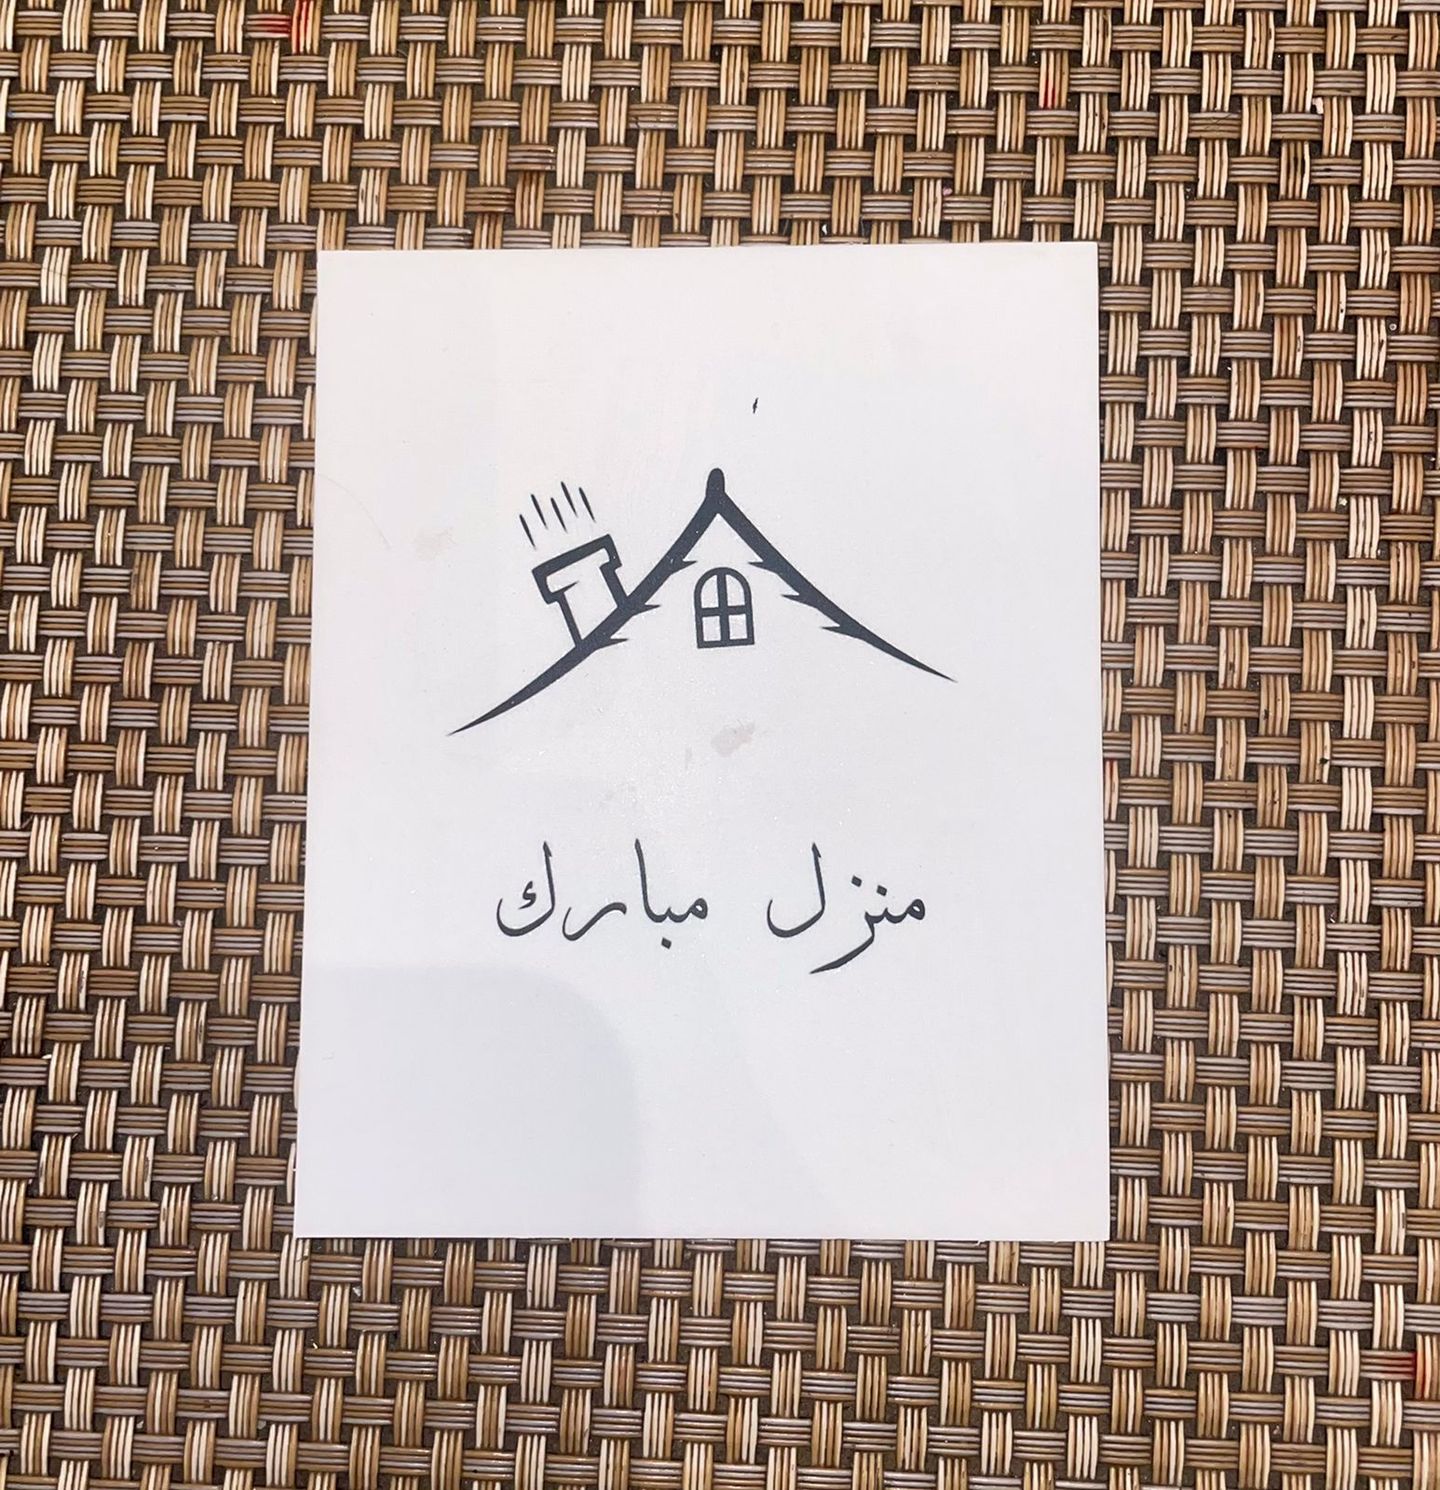 منزل مبارك